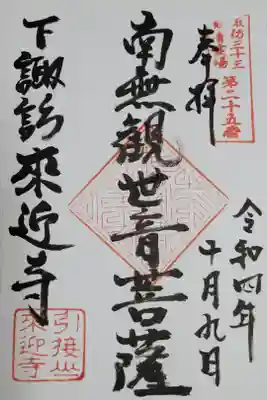 諏訪三十三
第二十五番
奉拝
令和四年
十月九日
南無観世音菩薩
下諏訪來迎寺
引接山
來迎寺